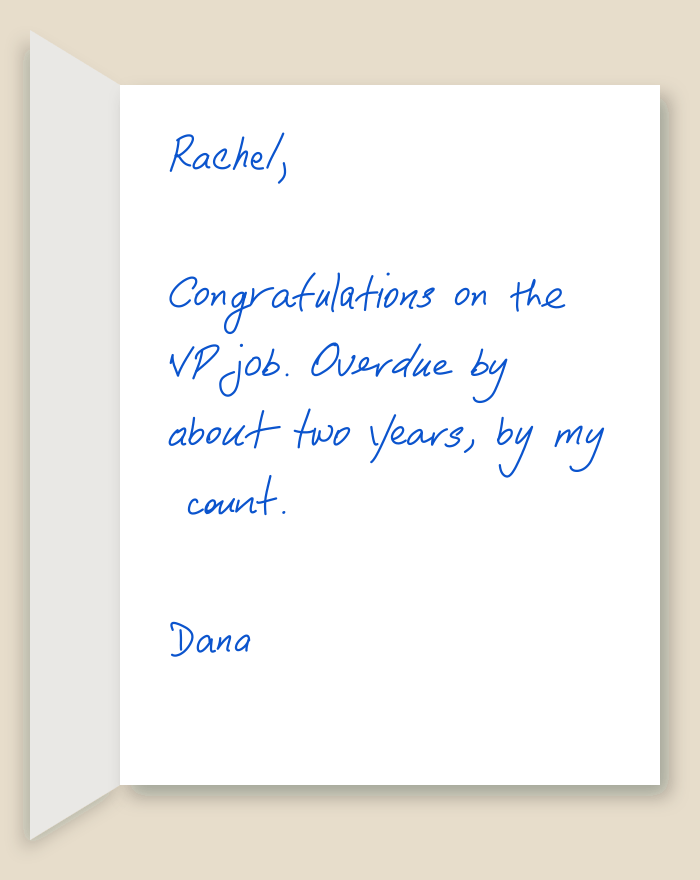 Rachel,
Congratulations on the
VP job. Overdue by
about two years, by my
count.
Dana